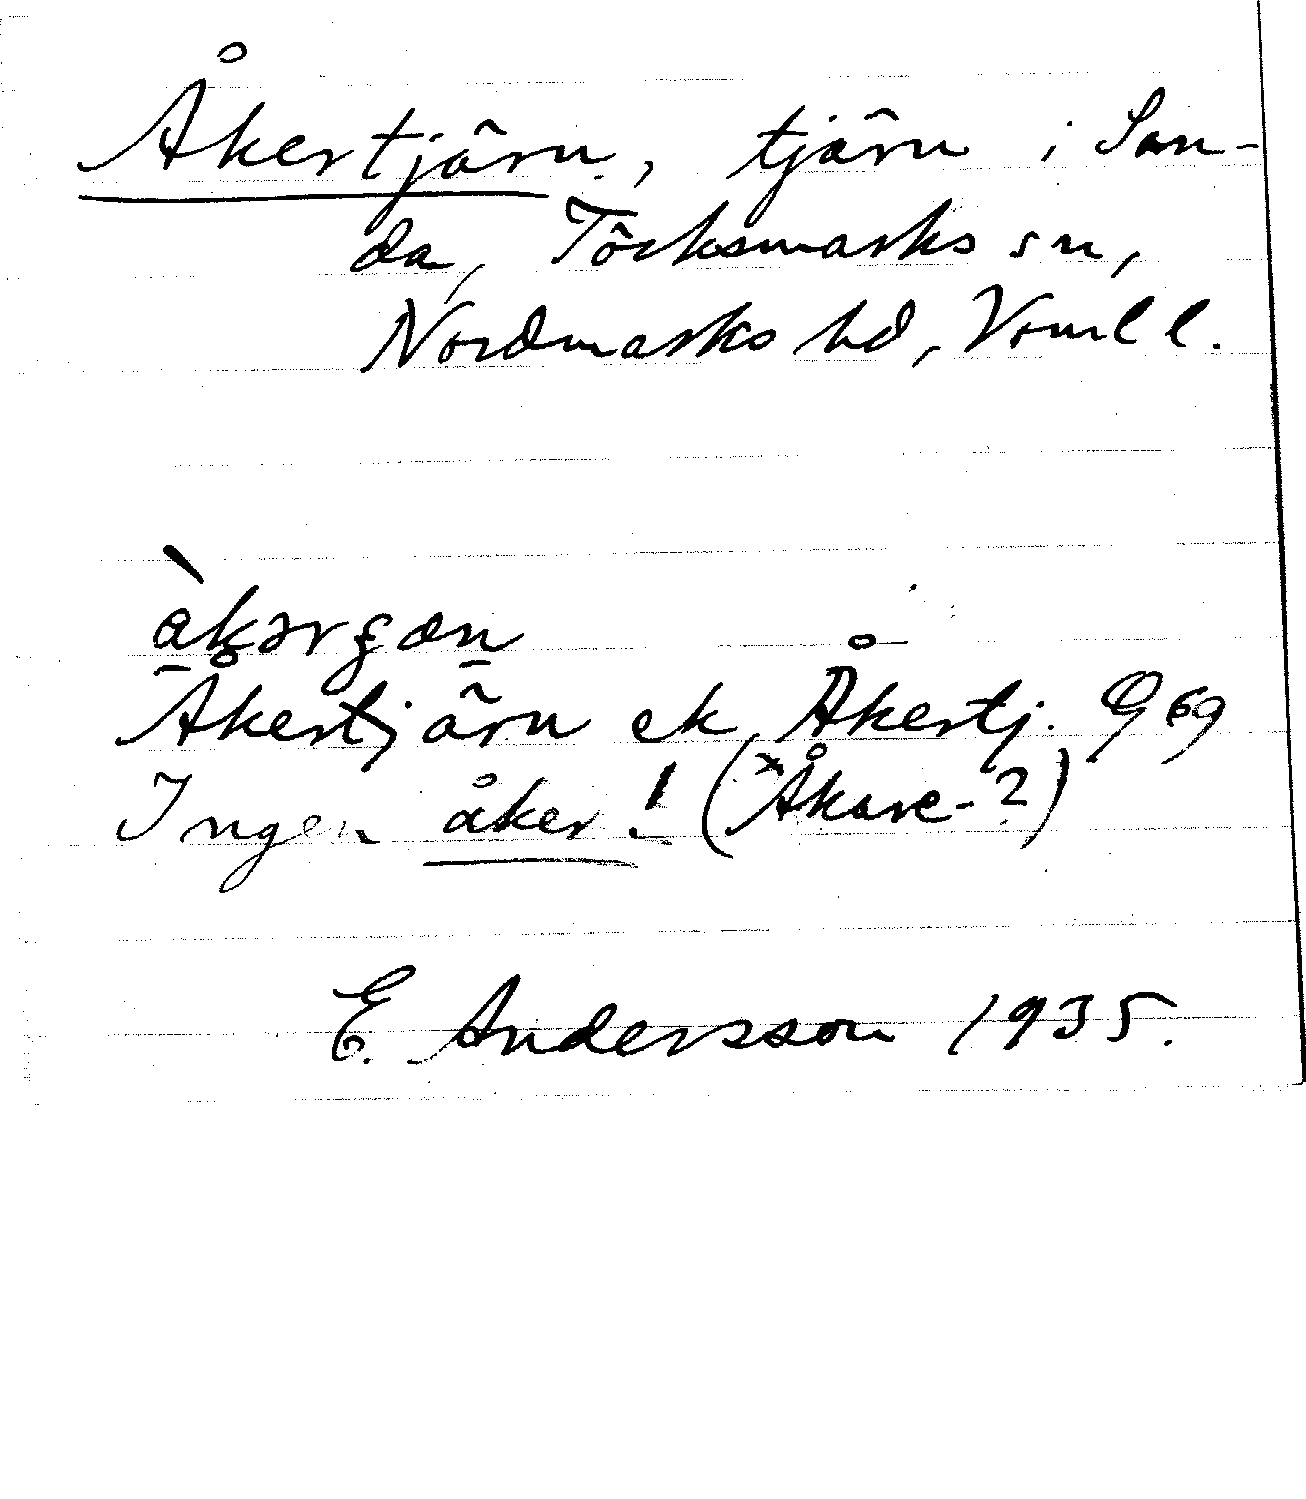 Åkertjärn, tjärn i San-
da, Töcksmarks sn,
Nordmarks hd, Vrml l.
Åkertjärn ek, Åkertj. G 69
Ingen åker! (*Åkare-?)
E. Andersson 1935.